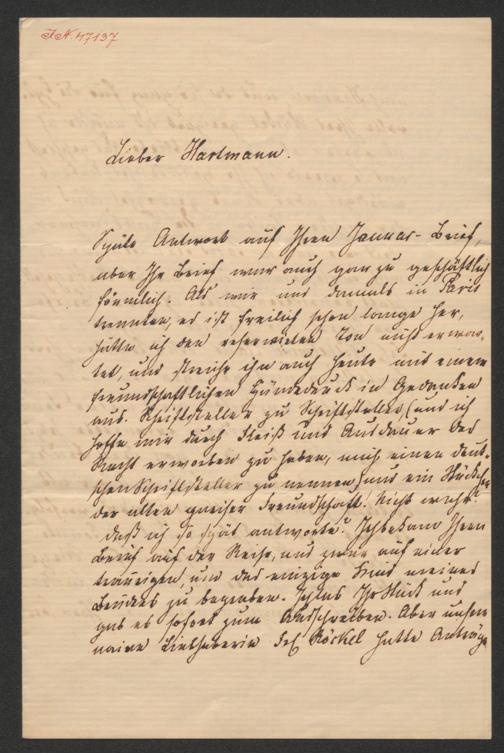 I.N. 47137
Lieber Hartmann.
Späte Antwort auf Ihren Januar-Brief,
aber Ihr Brief war auch gar zu geschäftlich
förmlich. Als wir uns damals in Paris
trennten, es ist freilich schon lange her,
hätte ich den reservierten Ton nicht erwar-
tet, und streiche ihn auch heute mit einem
freundschaftlichen Händedruck in Gedanken
aus. Schriftsteller zu Schriftsteller, (und ich
hoffe mir durch Fleiß und Ausdauer das
Recht erworben zu haben, mich einen deut-
schen Schriftsteller zu nennen) und ein Stückchen
der alten pariser Freundschaft! Nicht wahr?
Daß ich so spät antworte? Ich bekam Ihren
Brief auf der Reise, und zwar auf einer
traurigen, um das einzige Kind meines
Bruders zu begraben. Ich las Ihr Stück und
gab es sofort zum Ausschreiben. Aber unsere
naive Liebhaberin Frl. Röckel hatte Anträge